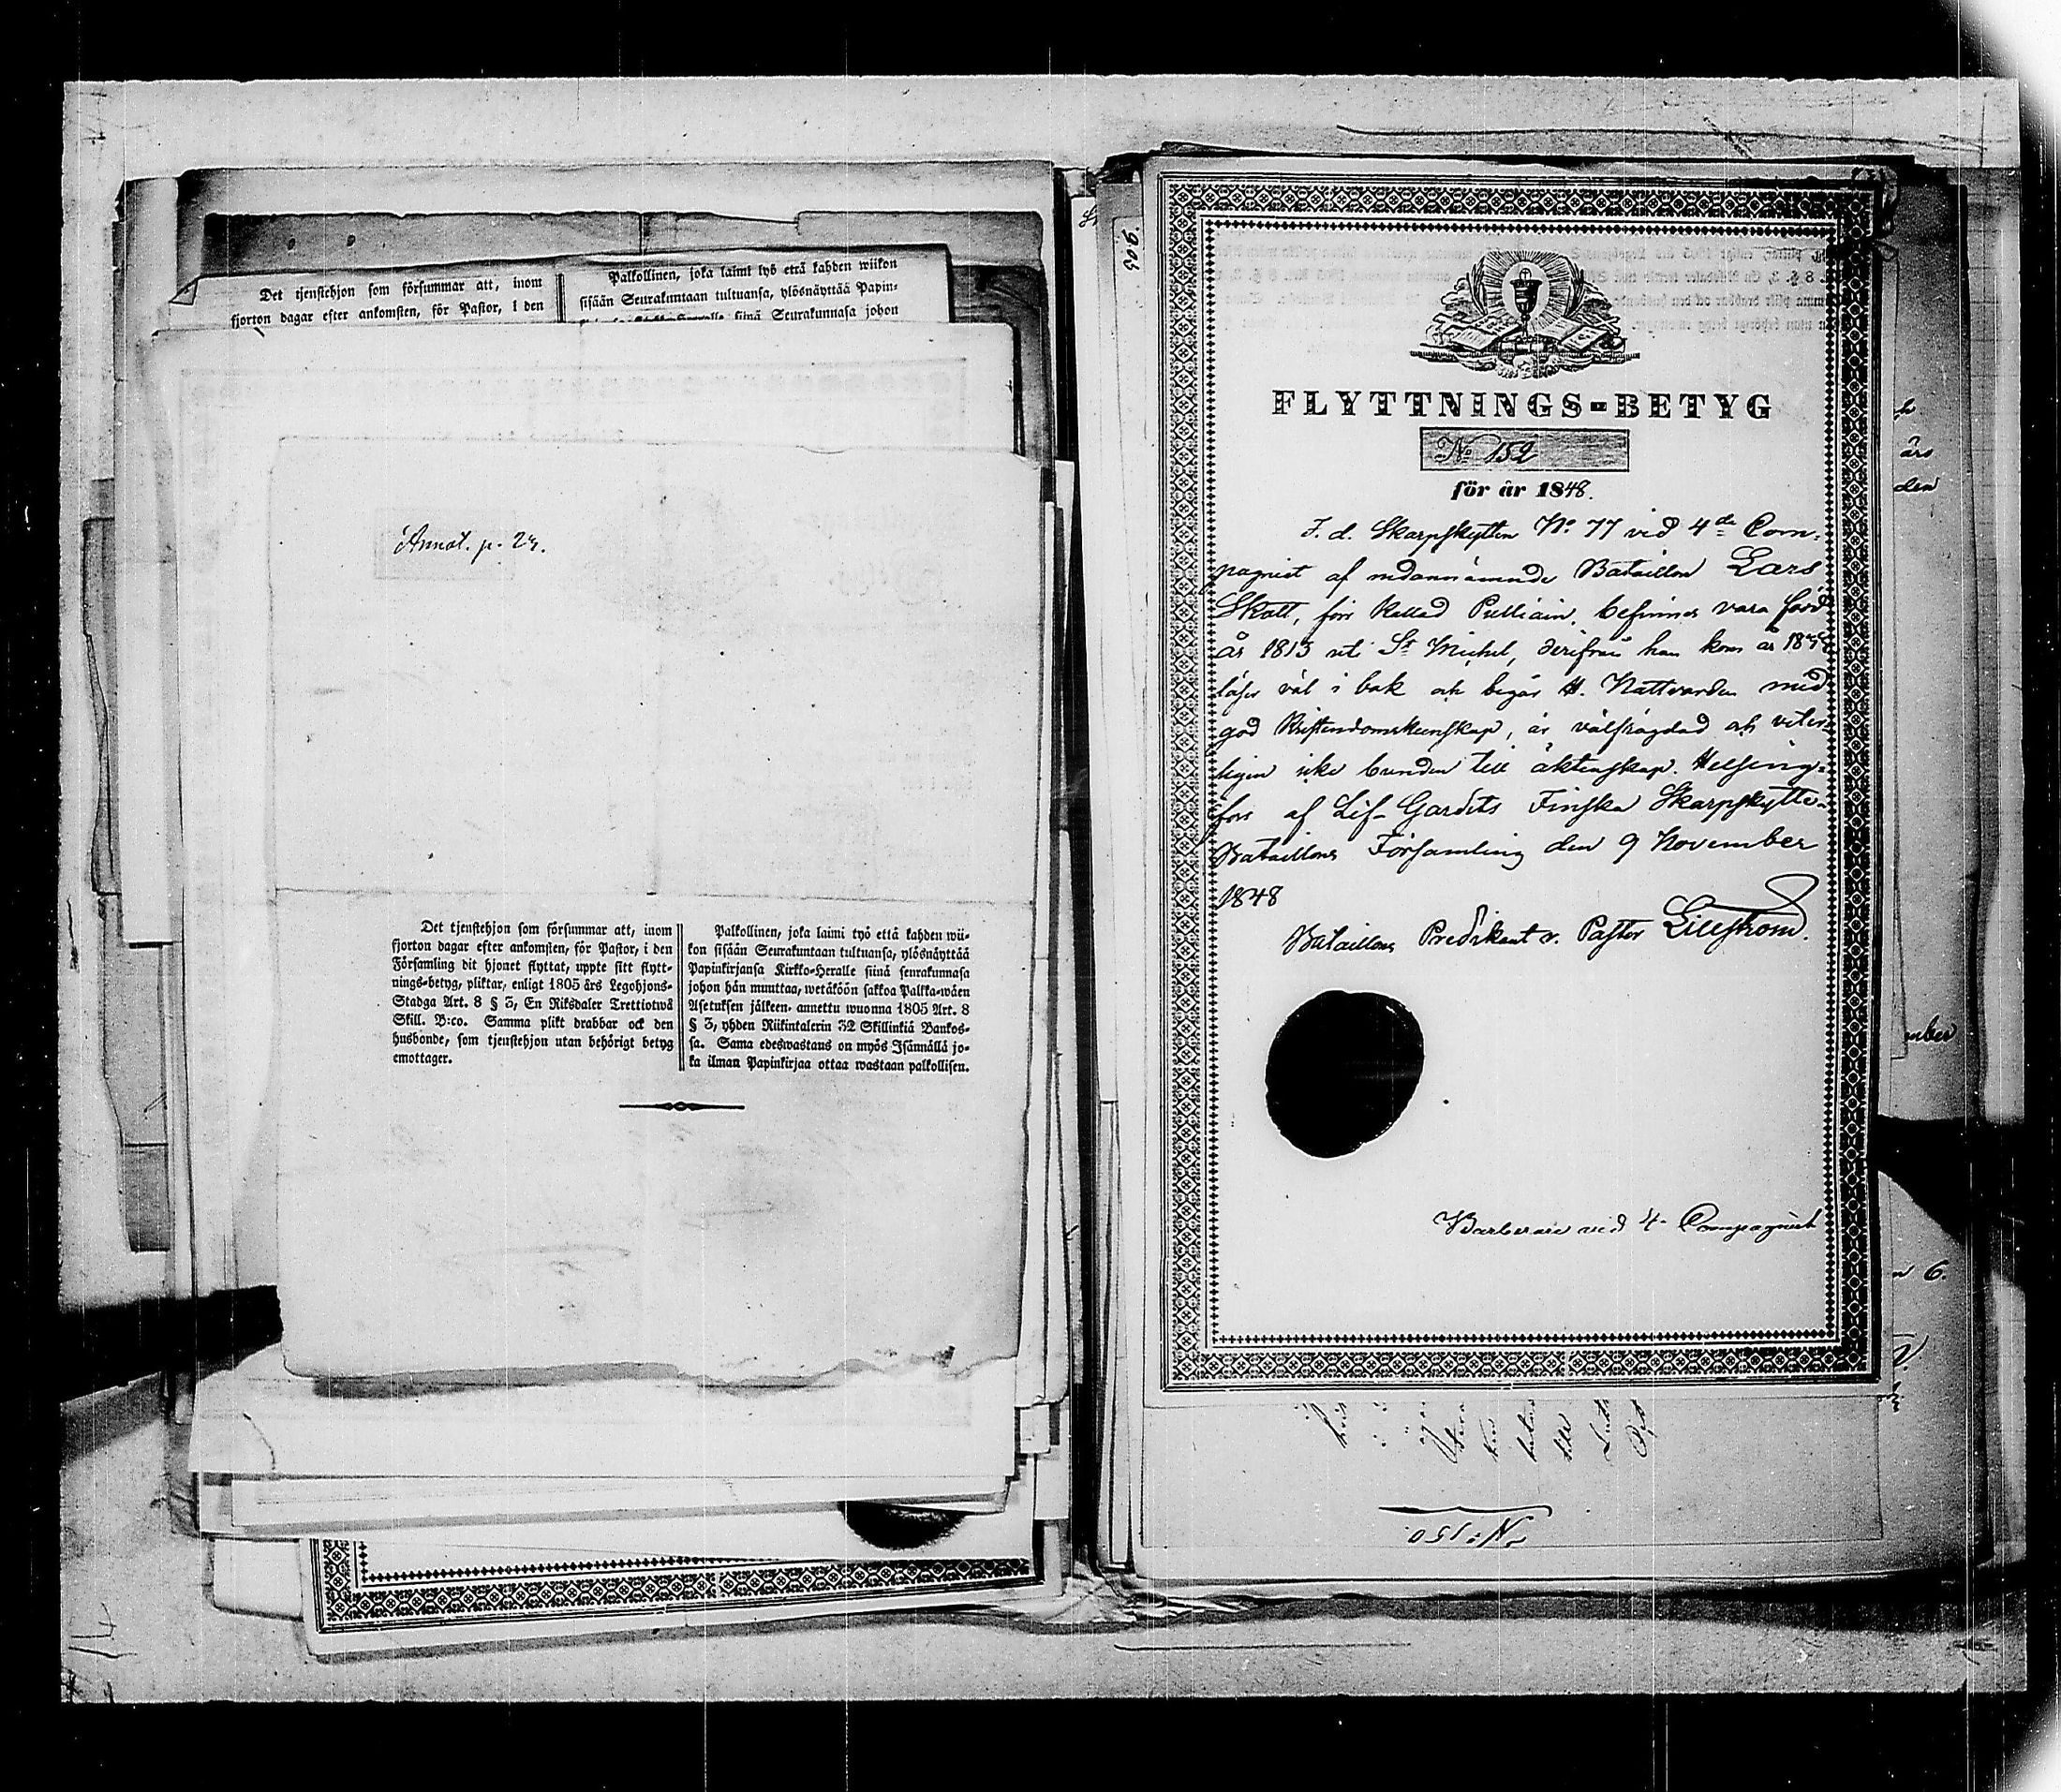 Det tjenstehjon som försummar att, inom
fjorton dagar efter ankomsten, för Pastor, i den
Palkollinen, joka laimi lyö että kahden wiikon
sisään Seurakuntaan tultuansa, ylösnäyttää Papin-
siinä Seurakunnasa johon
Annot. p. 24.
Det tjenstehjon som försummar att, inom
fjorton dagar efter ankomsten, för Pastor, i den
Församling dit hjonet flyttat, uppte sitt flytt-
nings-betyg, pliktar, enligt 1805 års Legohjons-
Stadga Art. 8 § 3, En Riksdaler Trettiotwå
Skill. B:co. Samma plikt drabbar ock den
husbonde, som tjenstehjon utan behörigt betyg
emottager.
Palkollinen, joka laimi työ että kahden wii-
kon sisään Seurakuntaan tultuansa, ylösnäyttää
Papinkirjansa Kirkko-Heralle siinä seurakunnasa
johon hän muuttaa, wetäköön sakkoa Palkka-wäen
Asetuksen jälkeen, annettu wuonna 1805 Art. 8
§ 3, yhden Riikintalerin 32 Skillinkiä Bankos-
sa. Sama edeswastaus on myös Isännällä jo-
ka ilman Papinkirjaa ottaa wastaan palkollisen.
FLYTTNINGS-BETYG
No 152
för år 1848.
F. d. Skarpskytten No. 77 vid 4de Com-
pagniet af nedannämnde Bataillon Lars
Skatt, förr kallad Pulliain, befinnes vara född
år 1813 uti St Michel, derifrån han kom år
läser väl i bok och begår H. Nattvarden med
god Kristendomskunskap, är välfrägdad och veter-
ligen icke bunden till äktenskap. Helsing-
fors af Lif-Gardets Finska Skarpskytte-
Bataillons Församling den 9 November
1848
Bataillons Predikant v. Pastor Lillström.
vid 4 Compagniet
No: 150.
års
den
mber
6.